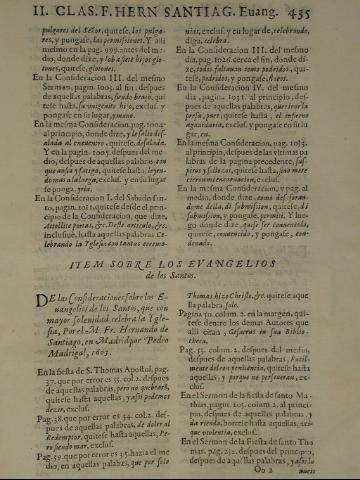 II. CLAS. F. HERN SANTIAG. Euang. 435
pulgares del Señor, quitese, los pulga-
res, y pongase, los permisiones. Y assi
mesmo en la pag. 999. antes del me-
dio, donde dize, y los a seis hijos glo-
tones, quitese, glotones.
En la Consideracion III. del mesmo
Sermon, pagin. 1002. al fin, despues
de aquellas palabras, siendo bruto, qui-
tese hasta, su vnigenito hijo, exclus. y
pongase en su lugar,
En la mesma Consideracion pag. 1004.
al principio, donde dize, y le salio des-
alada al encuentro, quitese, desalada.
Y en la pagin. 1005. despues del me-
dio, despues de aquellas palabras, con
que ansia y fatiga, quitese hasta,
exclus. y en su lugar
se ponga,
En la Consideracion I. del Sabado san-
to, pagin. 1021. quitese desde el prin-
cipio de la Consideracion, que dize,
Attollite portas, &c. Deste articulo, &c.
inclusiuè, hasta aquellas palabras Ce-
lebrando la Yglesia con tantos
nias, exclus. y en lugar de, celebrando,
diga, celebra.
En la Consideracion III. del mesmo
dia, pag. 1026. cerca el fin, donde di-
ze, todos soltando como podridos, qui-
tese, podridos, y pongase,
En la Consideracion IV. del mesmo
dia, pagina 1031. al principio, des-
pues de aquellas palabras,
presa, pues, quitese hasta, el infierno
aguardaria, exclus. y pongase en su lu-
gar, en.
En la mesma Consideracion, pag. 1033.
al principio, despues de las vltimas pa
labras de la pagina precedente, sus-
piros y sollozos, quitese hasta, sino mere
circuncircuncision, exclus.
En la mesma Consideracion, y pag. al
medio, donde dize, como desesperan-
done della, di submision, quitese, di
submision, y pongase, permiti, Y lue-
go donde dize, quise ser conuencido,
quitese, conuencido, y pongase, con-
denado.
ITEM SOBRE LOS EVANGELIOS
de los Santos.
DE las Consideraciones sobre los E-
uangelios de los Santos, que con
mayor solenidad celebra la Ygle-
sia, Por el M. Fr. Hernando de
Santiago, en Madrid por Pedro
Madrigal, 1603.
En la fiesta de S. Thomas Apostol, pag.
37. que por error es 35. col. 2. despues
de aquellas palabras, pero no quebraré,
quitese hasta, y assi podemos
dezir, exclus.
Pag. 38. que por error es 34. col. 2. des-
pues de aquellas palabras, de doler al
Redemptor, quitese hasta aquellas, Pe-
ro siendo mar. exclus.
Pag. 39. que por error es 35. hazia el me-
dio, en aquellas palabras, que por solo
Thomas hizo Christo, &c. quitese aque-
lla palabra, solo.
Pagina 50. colum. 2. en la margen, qui-
tese dentre los demas Autores que
alli citan, Gesnerus in sua Biblio-
theca.
Pag. 55. colum. 2. despues del medio,
despues de aquellas palabras, Facil-
mente del en penitencia, quitese hasta
aquellas, y porque no perseueran, ex-
clus.
En el Sermon de la fiesta de santo Ma-
thias, pagin. 205. colum. 2. al princi-
pio, despues de aquellas palabras, y
da rienda, borrese hasta aquellas, aci-
que violentia, exclus.
En el Sermon de la Fiesta de santo Tho
mas, pag. 232. despues del principio,
despues de aquellas palabras, y assi lo
Oo 2